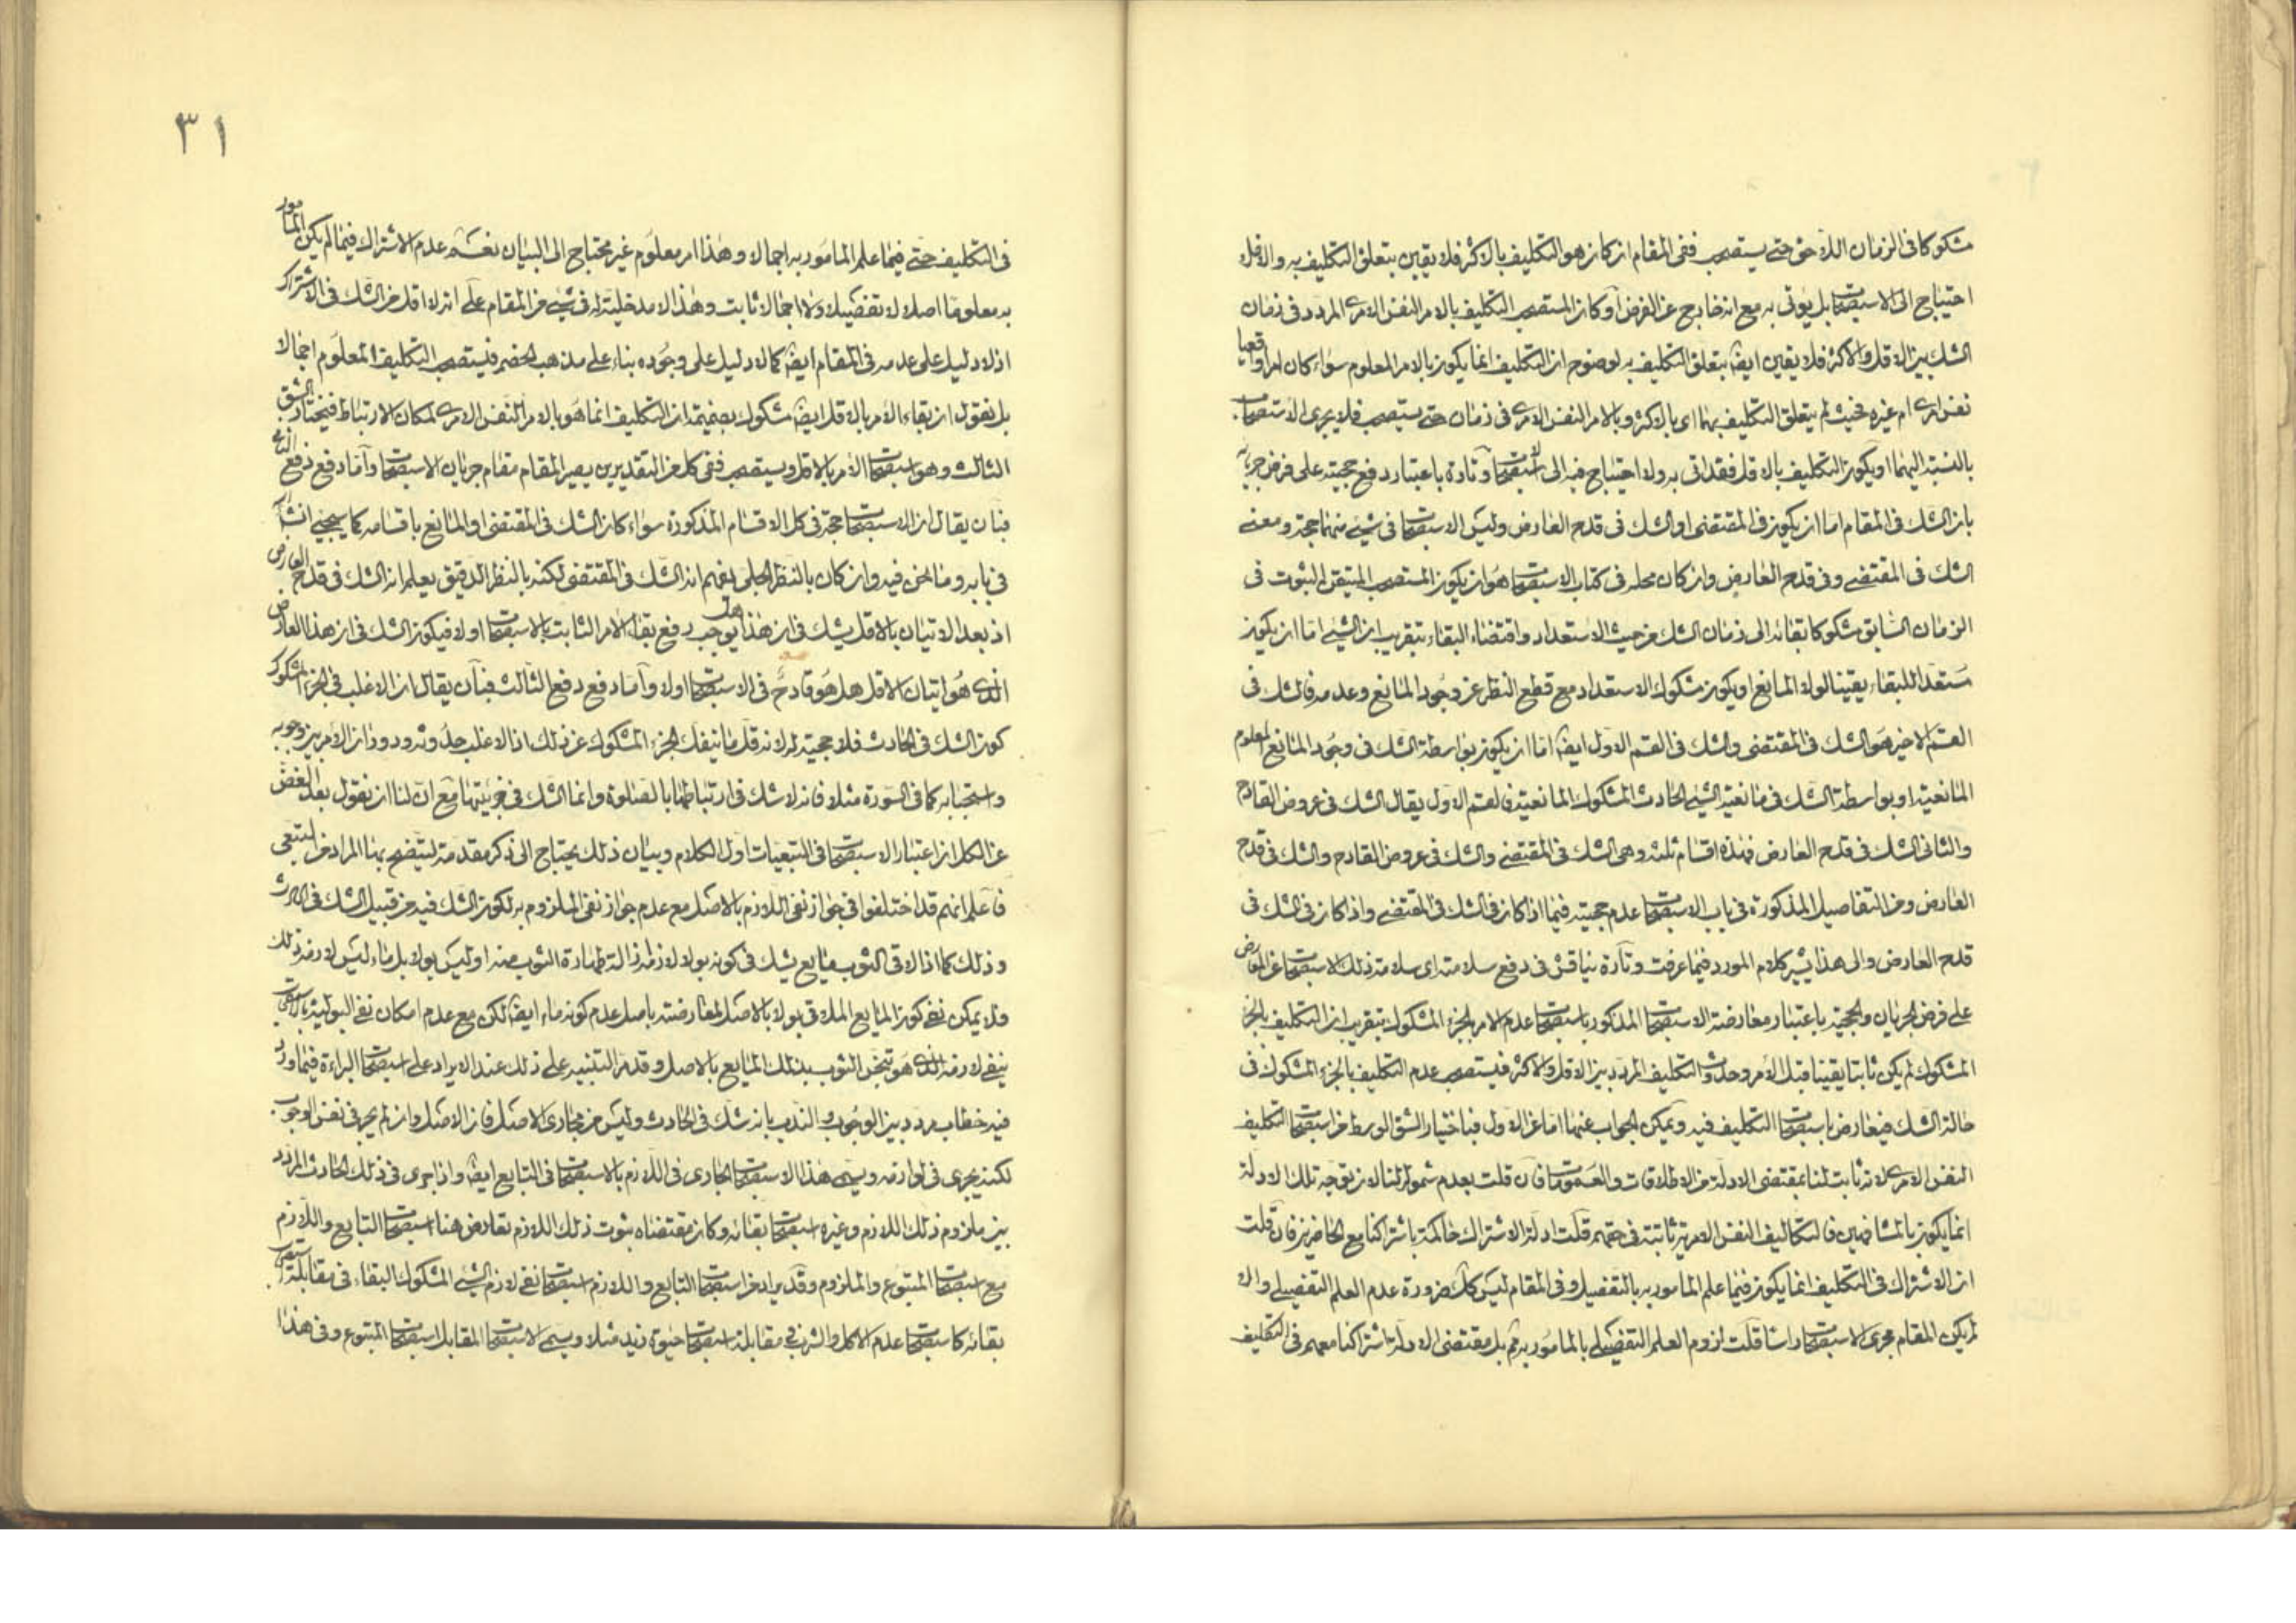 مشكوكا فى الزمان اللاحق حتى يستصحب ففى المقام ان كان هو التكليف بالاكثر فلا يقين بتعلق التكليف به والاقل فلا
احتياج الى الاستصحاب بل يؤتى به مع انه خارج عن الفرض او كان المستصحب التكليف بالامر النفس الامرى المردد فى زمان
الشك بين الاقل والاكثر فلا يقين ايضا بتعلق التكليف به لوضوح ان التكليف انما يكون بالامر المعلوم سواء كان امرا واقعيا
نفس امرى ام غيره فحيث لم يتعلق التكليف بهما اى بالاكثر وبالامر النفس الامرى فى زمان حتى يستصحب فلا يجرى الاستصحاب
بالنسبة اليهما او يكون التكليف بالاقل فقد اتى به ولا احتياج فيه الى الاستصحاب وتارة باعتبار دفع حجيته على فرض جريانه
بان الشك فى المقام اما ان يكون فى المقتضى او الشك فى قدح العارض وليس الاستصحاب فى شىء منهما حجة ومعنى
الشك فى المقتضى وفى قدح العارض وان كان محله فى كتاب الاستصحاب هو ان يكون المستصحب المتيقن الثبوت فى
الزمان السابق مشكوكا بقائه الى زمان الشك من حيث الاستعداد واقتضاء البقاء بتقريب ان الشىء اما ان يكون
مستعدا للبقاء يقينا لولا المانع او يكون مشكوك الاستعداد مع قطع النظر عن وجود المانع وعدمه فالشك فى
القسم الاخير هو الشك فى المقتضى والشك فى القسم الاول ايضا اما ان يكون بواسطة الشك فى وجود المانع المعلوم
المانعية او بواسطة الشك فى مانعية الشىء الحادث المشكوك المانعية فالقسم الاول يقال الشك فى عروض القادح
والثانى الشك فى قدح العارض فهذه اقسام ثلثة وهى الشك فى المقتضى والشك فى عروض القادح والشك فى قدح
العارض ومن التفاصيل المذكورة فى باب الاستصحاب عدم حجيته فيما اذا كان فى الشك فى المقتضى واذا كان فى الشك فى
قدح العارض والى هذا يشير كلام المورد فيما عرفت وتارة يناقش فى دفع سلامته اى سلامة ذلك الاستصحاب عن المعارض
على فرض الجريان والحجية باعتبار معارضة الاستصحاب المذكور باستصحاب عدم الامر بالجزء المشكوك بتقريب ان التكليف بالجزء
المشكوك لم يكن ثابتا يقينا قبل الامر وحدوث التكليف المردد بين الاقل والاكثر فيستصحب عدم التكليف بالجزء المشكوك فى
حالة الشك فيعارض باستصحاب التكليف فيه ويمكن الجواب عنها اما عن الاول فباختيار الشق الوسط من استصحاب التكليف
النفس الامرى لانه ثابت لنا بمقتضى الادلة من الاطلاقات والعمومات فان قلت بعدم شموله لنا لان توجه تلك الادلة
انما يكون بالمشافهين فالتكاليف النفس الامرية ثابتة فى حقهم قلت ادلة الاشتراك حاكمة باشتراكنا مع الحاضرين فان قلت
ان الاشتراك فى التكليف انما يكون فيما علم المامور به بالتفصيل وفى المقام ليس كك ضرورة عدم العلم التفصيلى والا
لم يكن المقام مجرى الاستصحاب راسا قلت لزوم العلم التفصيلى بالمامور به ثم بل مقتضى الادلة اشتراكنا معهم فى التكليف
٣١
فى التكليف حتى فيما علم المامور به اجمالا وهذا امر معلوم غير محتاج الى البيان نعم عدم الاشتراك فيما لم يكن المامور
به معلوما اصلا لا تفصيلا ولا اجمالا ثابت وهذا لا مدخلية له فى شىء من المقام على انه لا اقل من الشك فى الاشتراك
اذ لا دليل على عدمه فى المقام ايضا كما لا دليل على وجوده بناء على مذهب الخصم فيستصحب التكليف المعلوم اجمالا
بل نقول ان بقاء الامر بالاقل ايضا مشكوك بضميمة ان التكليف انما هو بالامر النفس الامرى لمكان الارتباط فنختار الشق
الثالث وهو استصحاب الامر بالاقل ويستصحب ففى كل من التقديرين يصير المقام مقام جريان الاستصحاب واما دفع دفع الثانى
فبان يقال ان الاستصحاب حجة فى كل الاقسام المذكورة سواء كان الشك فى المقتضى او المانع باقسامه كما سيجىء انشاء الله
فى بابه وما نحن فيه وان كان بالنظر الجلى يفهم انه الشك فى المقتضى لكنه بالنظر الدقيق يعلم انه الشك فى قدح العارض
اذ بعد الاتيان بالاقل يشك فى ان هذا هل يوجب رفع بقاء الامر الثابت بالاستصحاب او لا فيكون الشك فى ان هذا العارض
الذى هو اتيان الاقل هل هو قادح فى الاستصحاب او لا واما دفع دفع الثالث فبان يقال ان الاغلب فى الجزء المشكوك
كون الشك فى الحادث فلا حجية له لانه قل ما ينفك الجزء المشكوك عن ذلك اذ الاغلب حدوثه ودوران الامر بين وجوبه
واستحبابه كما فى السورة مثلا فانه لا شك فى ارتباطها بالصلوة وانما الشك فى جزئيتها مع ان لنا ان نقول بعد الغض
عن الكل ان اعتبار الاستصحاب فى التبعيات اول الكلام وبيان ذلك يحتاج الى ذكر مقدمة ليتضح بها المراد من التبعى
فاعلم انهم قد اختلفوا فى جواز نفى اللازم بالاصل مع عدم جواز نفى الملزوم به لكون الشك فيه من قبيل الشك فى الحادث
وذلك كما اذا لاقى الثوب مايع يشك فى كونه بولا لازمه ازالة طهارة الثوب منه او ليس بولا بل ماء ليس لازمه ذلك
فلا يمكن نفى كون المايع الملاقى بولا بالاصل لمعارضته باصل عدم كونه ماء ايضا لكن مع عدم امكان نفى البولية بالاستصحاب
ينفى لازمه الذى هو تنجس الثوب بذلك المايع بالاصل وقد مر التنبيه على ذلك عند الايراد على استصحاب البراءة فيما ورد
فيه خطاب مردد بين الوجوب والندب بانه شك فى الحادث وليس من مجارى الاصل فان الاصل وان لم يجر فى نفس الوجوب
لكنه يجرى فى لوازمه ويسمى هذا الاستصحاب الجارى فى اللازم بالاستصحاب فى التابع ايضا واذا جرى فى ذلك الحادث المردد
بين ملزوم ذلك اللازم وغيره استصحاب بقائه وكان مقتضاه ثبوت ذلك اللازم تعارض هنا استصحاب التابع واللازم
مع استصحاب المتبوع والملزوم وقد يراد من استصحاب التابع واللازم استصحاب نفى لازم الشىء المشكوك البقاء فى مقابلة استصحاب
بقائه كاستصحاب عدم الاكل والشرب فى مقابلة استصحاب حيوة زيد مثلا ويسمى الاستصحاب المقابل استصحاب المتبوع وفى هذا